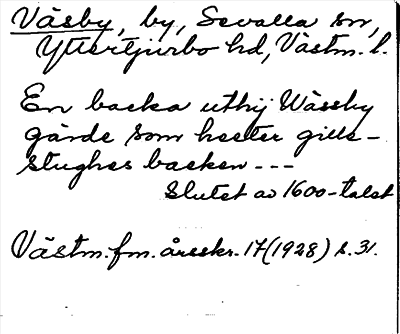 Väsby, by, Sevalla sn,
Yttertjurbo hd, Västm. l.
En backa uthij Wässby
gärde som heeter gille-
stughes backen ---
Slutet av 1600-talet
Västm. fm. årsskr. 17 (1928) s. 31.